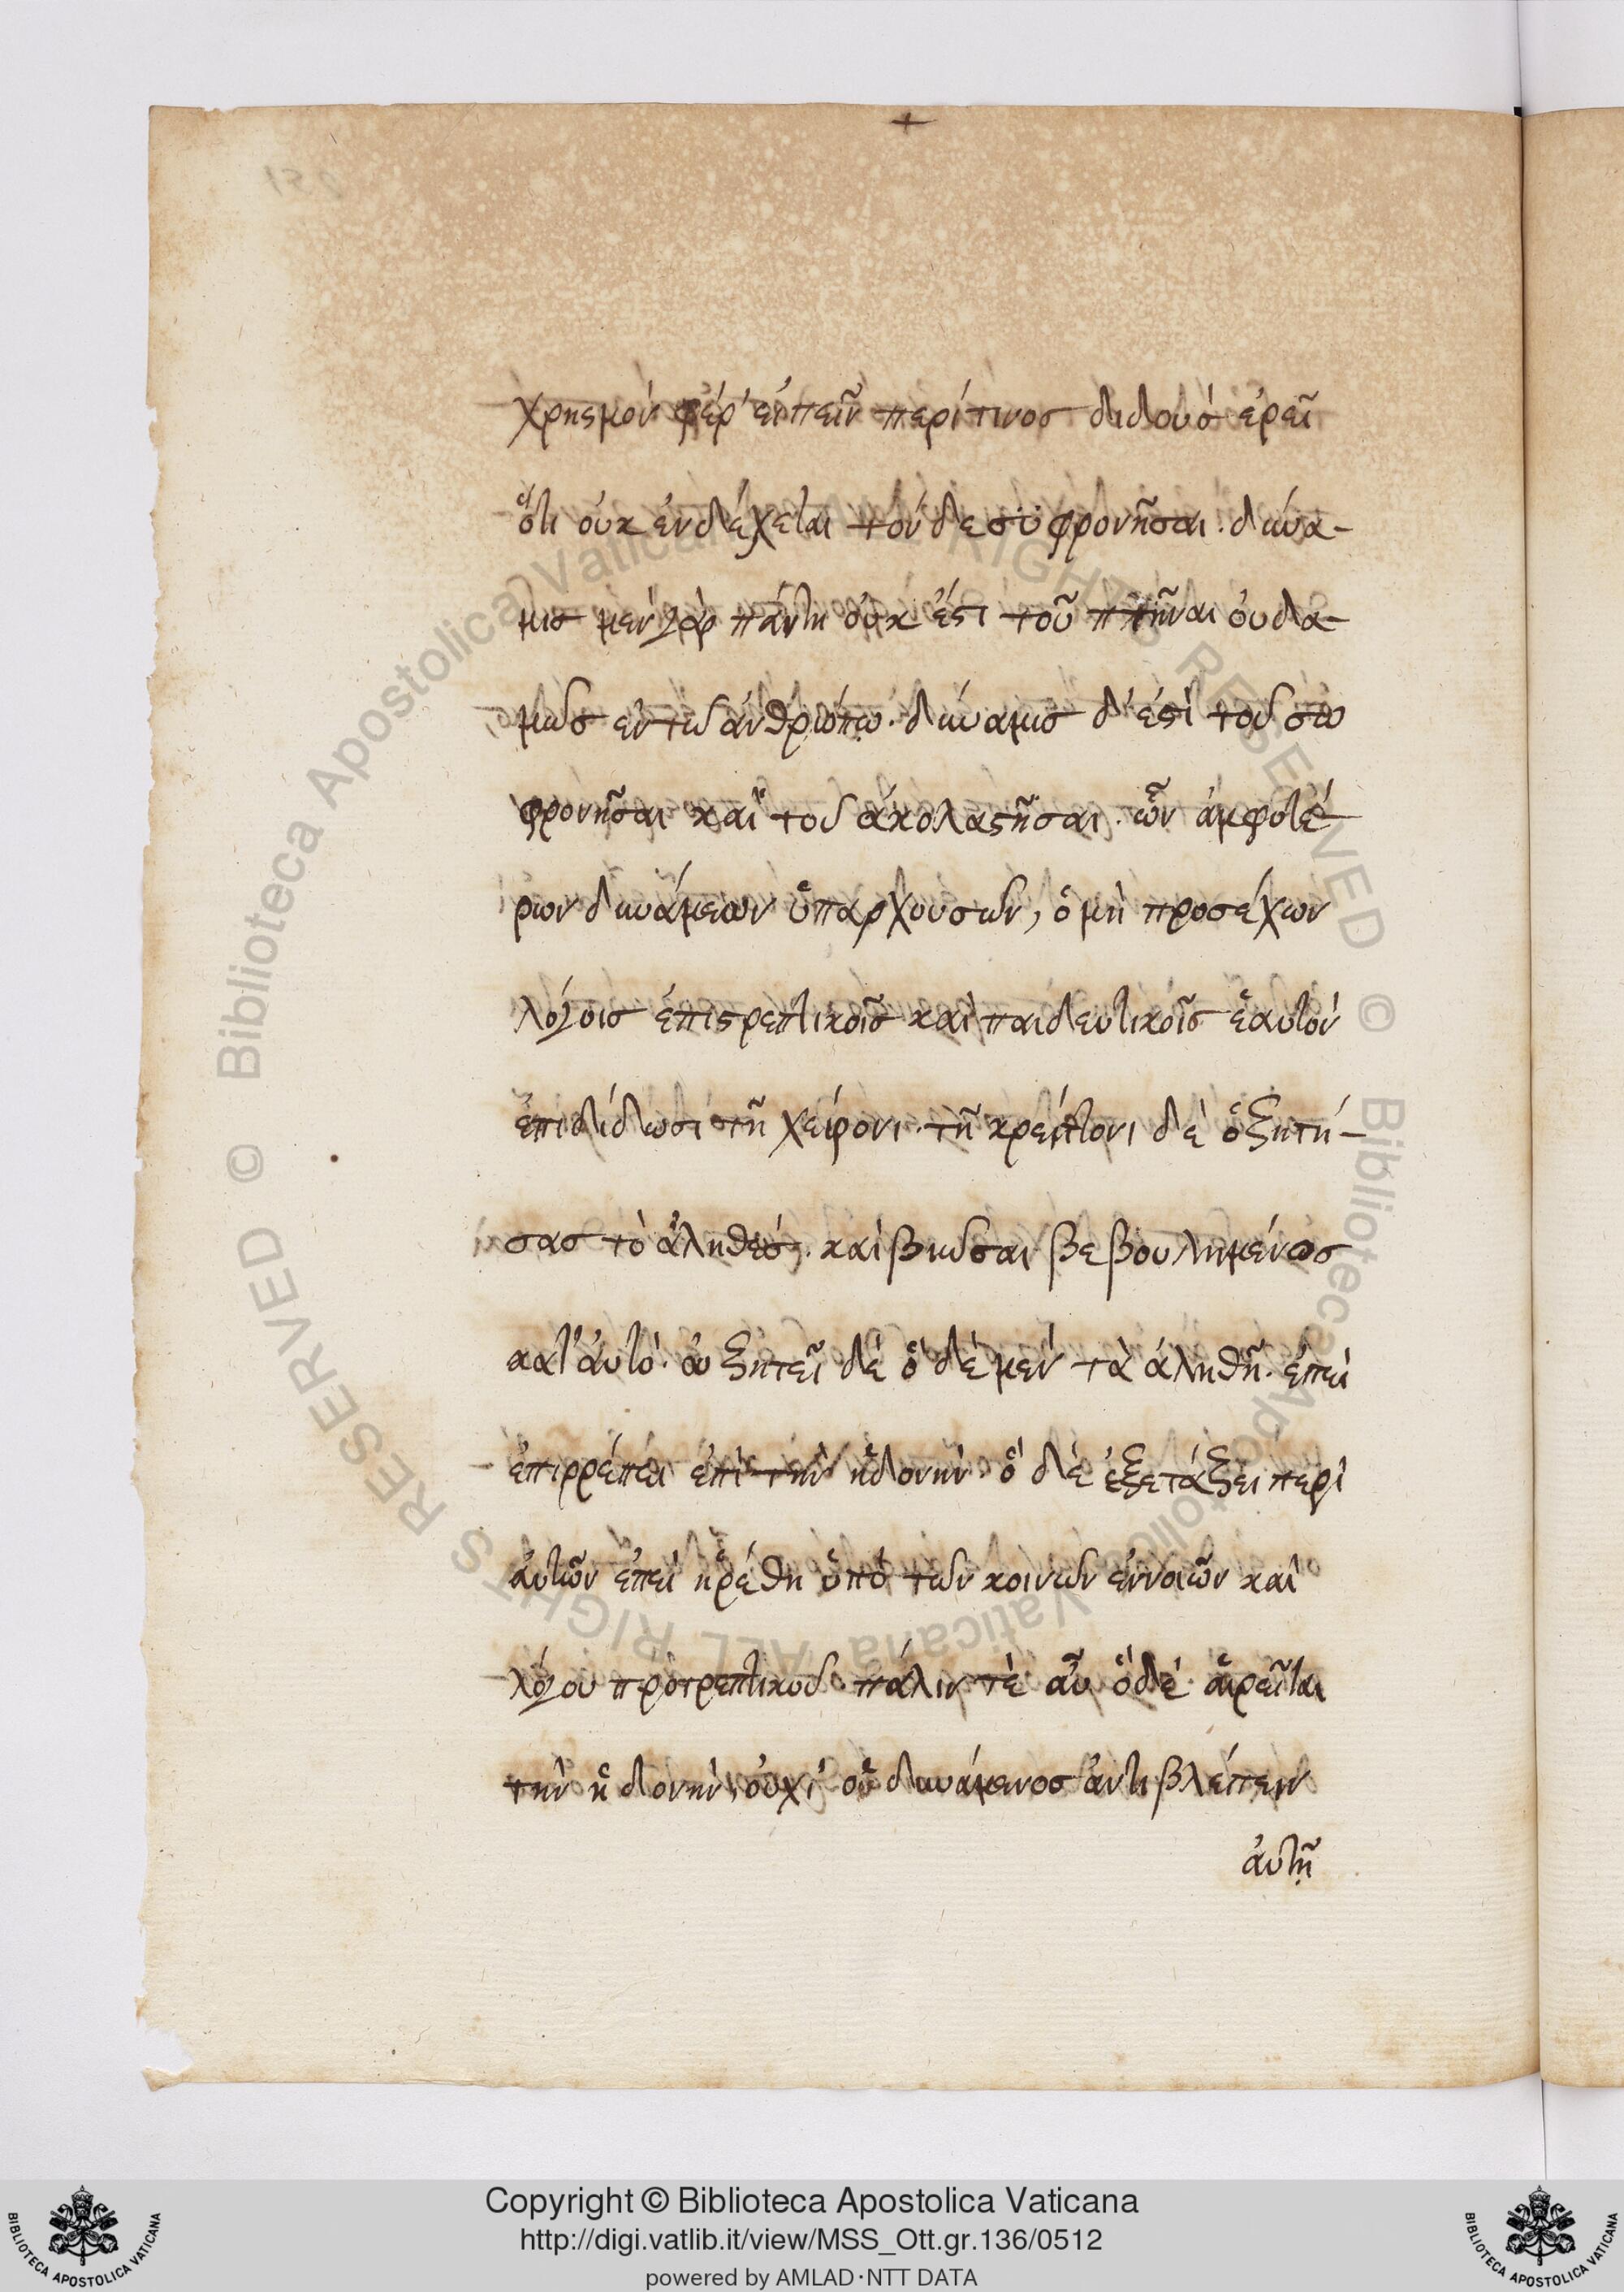 +
χρησμὸν φέρ' εἰπεῖν περί τινος διδοὺς ἐρεῖ
ὅτι οὐκ ἐνδέχεται τόνδε σωφρονῆσαι. δύνα-
μις μὲν γὰρ πάντη οὐκ ἔστι τοῦ πτῆναι οὐδα-
μῶς ἐν τῶ ἀνθρώπω. δύναμις δ' ἐστὶ τοῦ σω
φρονῆσαι καὶ τοῦ ἀκολαστῆσαι. ὧν ἀμφοτέ-
ρων δυνάμεων ὑπαρχουσῶν, ὁ μὴ προσέχων
λόγοις ἐπιστρεπτικοῖς καὶ παιδευτικοῖς ἑαυτὸν
ἐπιδίδωσι τῆ χείρονι. τῆ κρείττονι δὲ ὁ ζητή-
σας τὸ ἀληθές. καὶ βιῶσαι βεβουλημένος
κατ' αὐτό. οὐ ζητεῖ δὲ ὅδε μὲν τὰ ἀληθῆ. ἐπεὶ
ἐπιρρέπει ἐπὶ τὴν ἡδονήν. ὅδε ἐξετάζει περὶ
αὐτῶν ἐπεὶ ἡρέθη ὑπὸ τῶν κοινῶν ἐννοιῶν καὶ
λόγου προτρεπτικοῦ. πάλιν τὲ αὖ ὅδε αἱρεῖται
τὴν ἡδονὴν, οὐχὶ οὐ δυνάμενος ἀντιβλέπειν
αὐτῆ
Copyright © Biblioteca Apostolica Vaticana
http://digi.vatlib.it/view/MSS_Ott.gr.136/0512
powered by AMLAD·NTT DATA
BIBLIOTECA APOSTOLICA VATICANA
BIBLIOTECA APOSTOLICA VATICANA
© Biblioteca Apostolica Vaticana ALL RIGHTS RESERVED © Biblioteca Apostolica Vaticana ALL RIGHTS RESERVED